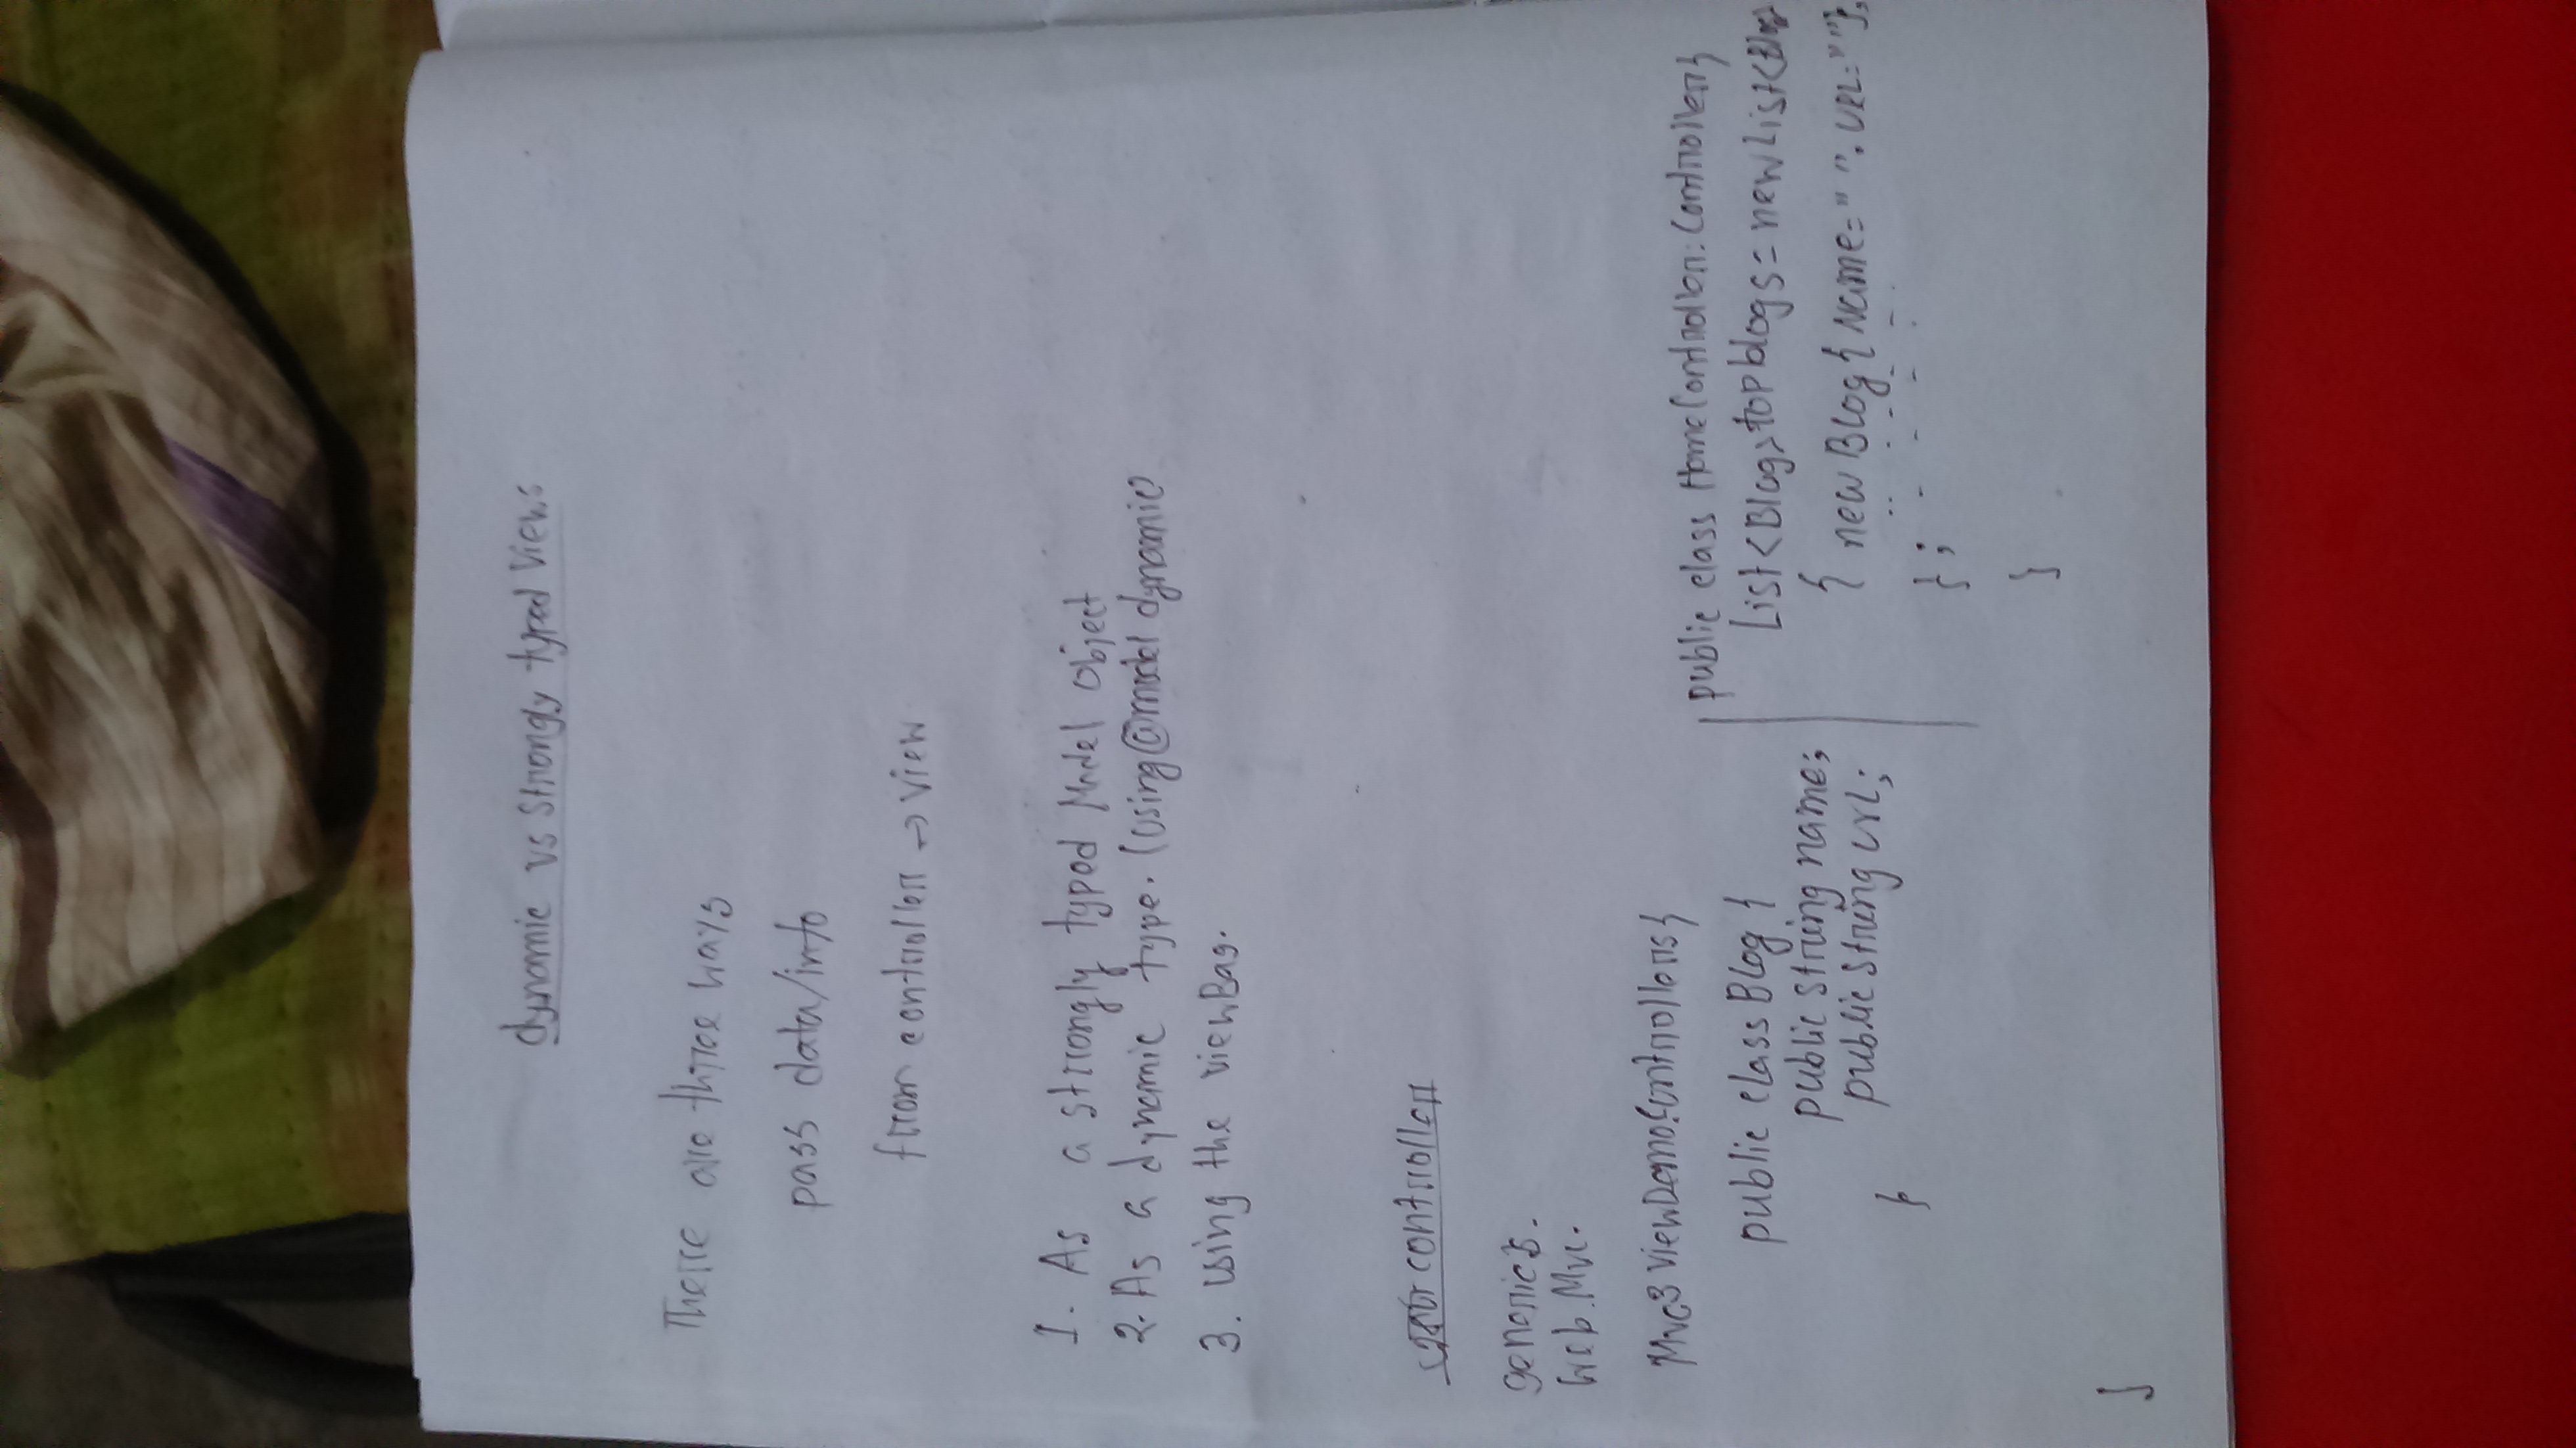 dynamic vs strongly typed Views
There are three ways
pass data/info
from controller → view
1. As a strongly typed Model Object
2. As a dynamic type. (Using @model dynamic)
3. Using the viewBag.
controller
generics.
Web.Mvc.
Mvc3 ViewDemo.Controllers {
public class Blog {
public string name;
public string URL;
}
public class HomeController: Controller {
List<Blog> topblogs = new List<Blog>
{ new Blog { Name = " ", URL = " "},
};
}
}